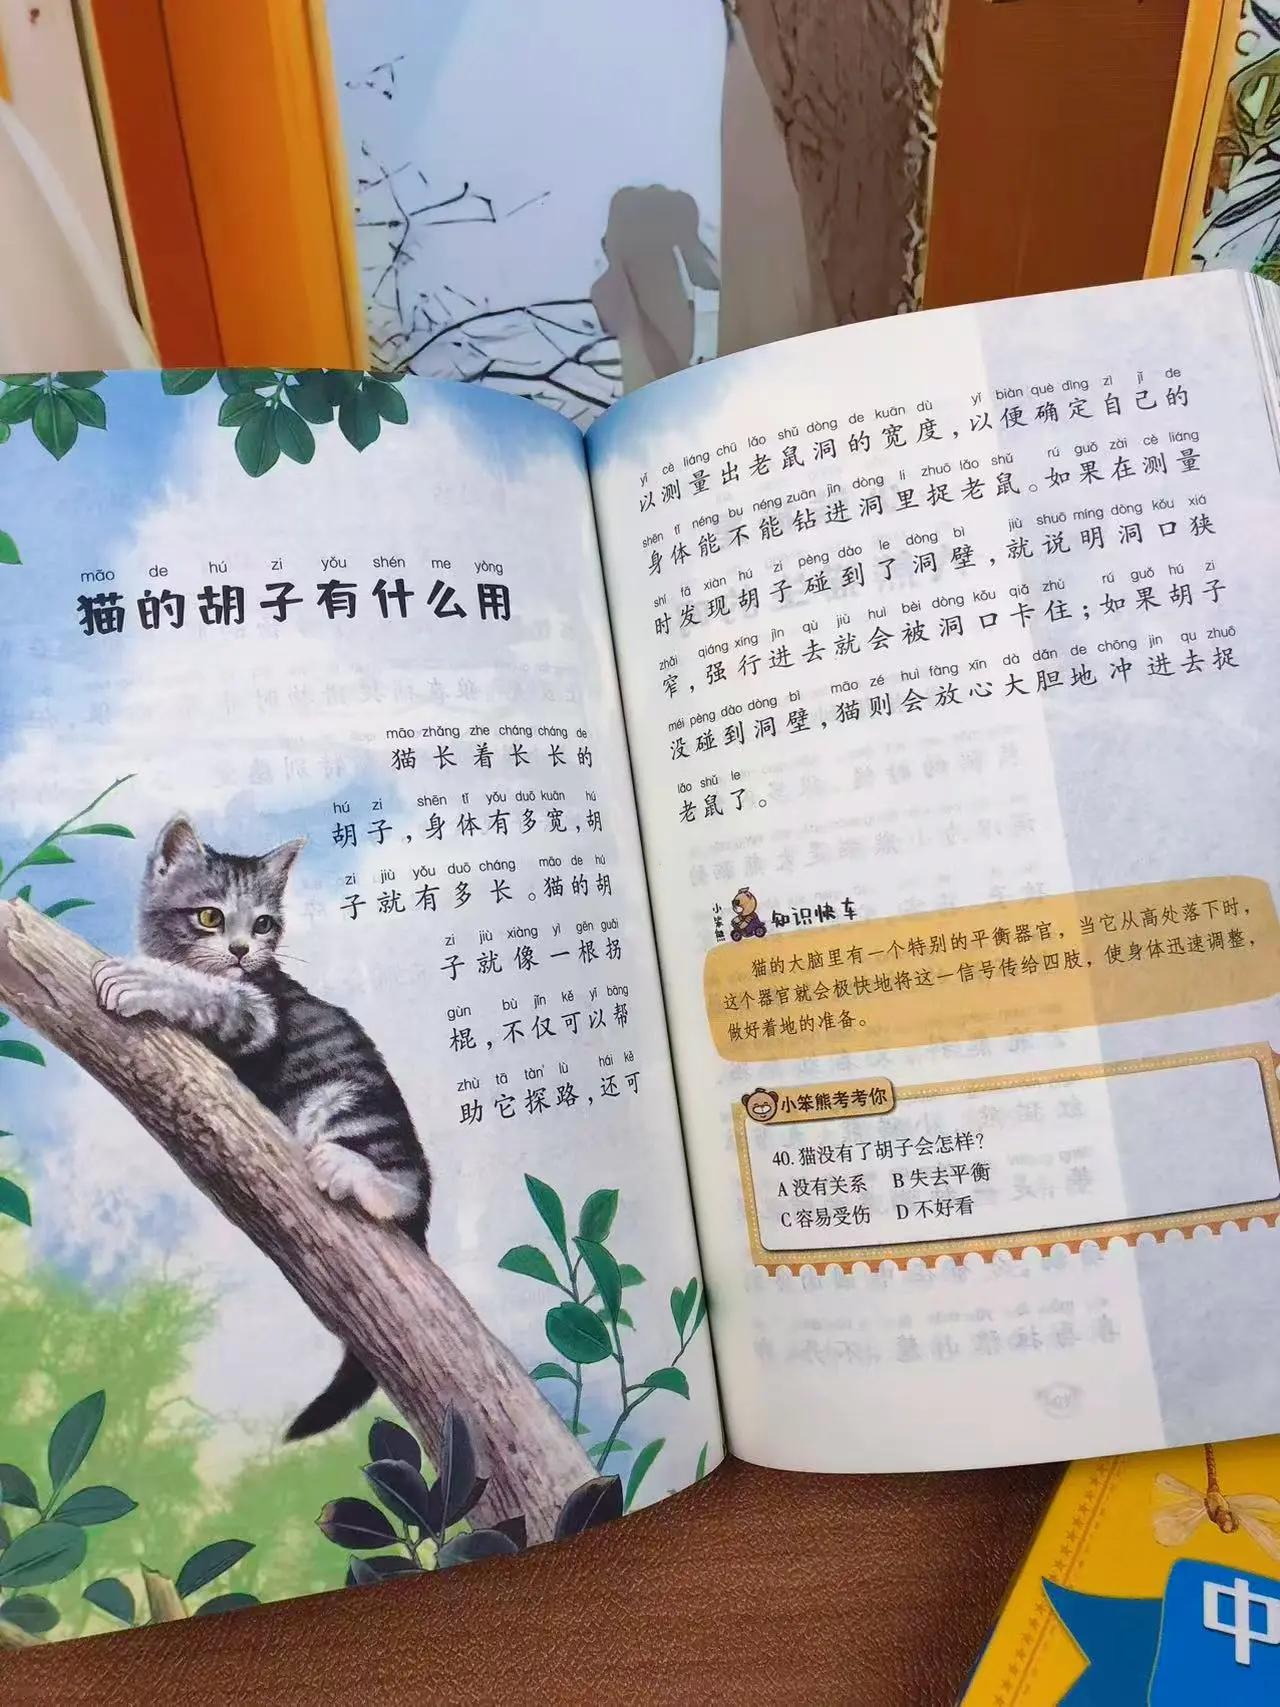 māo de hú zi yǒu shén me yòng
猫的胡子有什么用
māo zhǎng zhe cháng cháng de
猫长着长长的
hú zi shēn tǐ yǒu duō kuān hú
胡子，身体有多宽，胡
zi jiù yǒu duō cháng māo de hú
子就有多长。猫的胡
zi jiù xiàng yì gēn guǎi
子就像一根拐
gùn bù jǐn kě yǐ bāng
棍，不仅可以帮
zhù tā tàn lù hái kě
助它探路，还可
yǐ cè liáng chū lǎo shǔ dòng de kuān dù yǐ biàn què dìng zì jǐ de
以测量出老鼠洞的宽度，以便确定自己的
shēn tǐ néng bu néng zuān jìn dòng li zhuō lǎo shǔ rú guǒ zài cè liáng
身体能不能钻进洞里捉老鼠。如果在测量
shí fā xiàn hú zi pèng dào le dòng bì jiù shuō míng dòng kǒu xiá
时发现胡子碰到了洞壁，就说明洞口狭
zhǎi qiáng xíng jìn qù jiù huì bèi dòng kǒu qiǎ zhù rú guǒ hú zi
窄，强行进去就会被洞口卡住；如果胡子
méi pèng dào dòng bì māo zé huì fàng xīn dà dǎn de chōng jìn qu zhuō
没碰到洞壁，猫则会放心大胆地冲进去捉
lǎo shǔ le
老鼠了。
小笨熊 知识快车
猫的大脑里有一个特别的平衡器官，当它从高处落下时，
这个器官就会极快地将这一信号传给四肢，使身体迅速调整，
做好着地的准备。
小笨熊考考你
40.猫没有了胡子会怎样？
A没有关系 B失去平衡
C容易受伤 D不好看
中